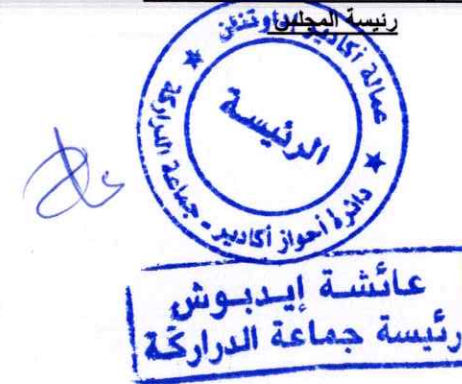 رئيسة المجلس
عمالة أكادير إداوتنان
الرئيسة
دائرة أحواز أكادير - جماعة الدراركة
عائشة إيدبوش
رئيسة جماعة الدراركة